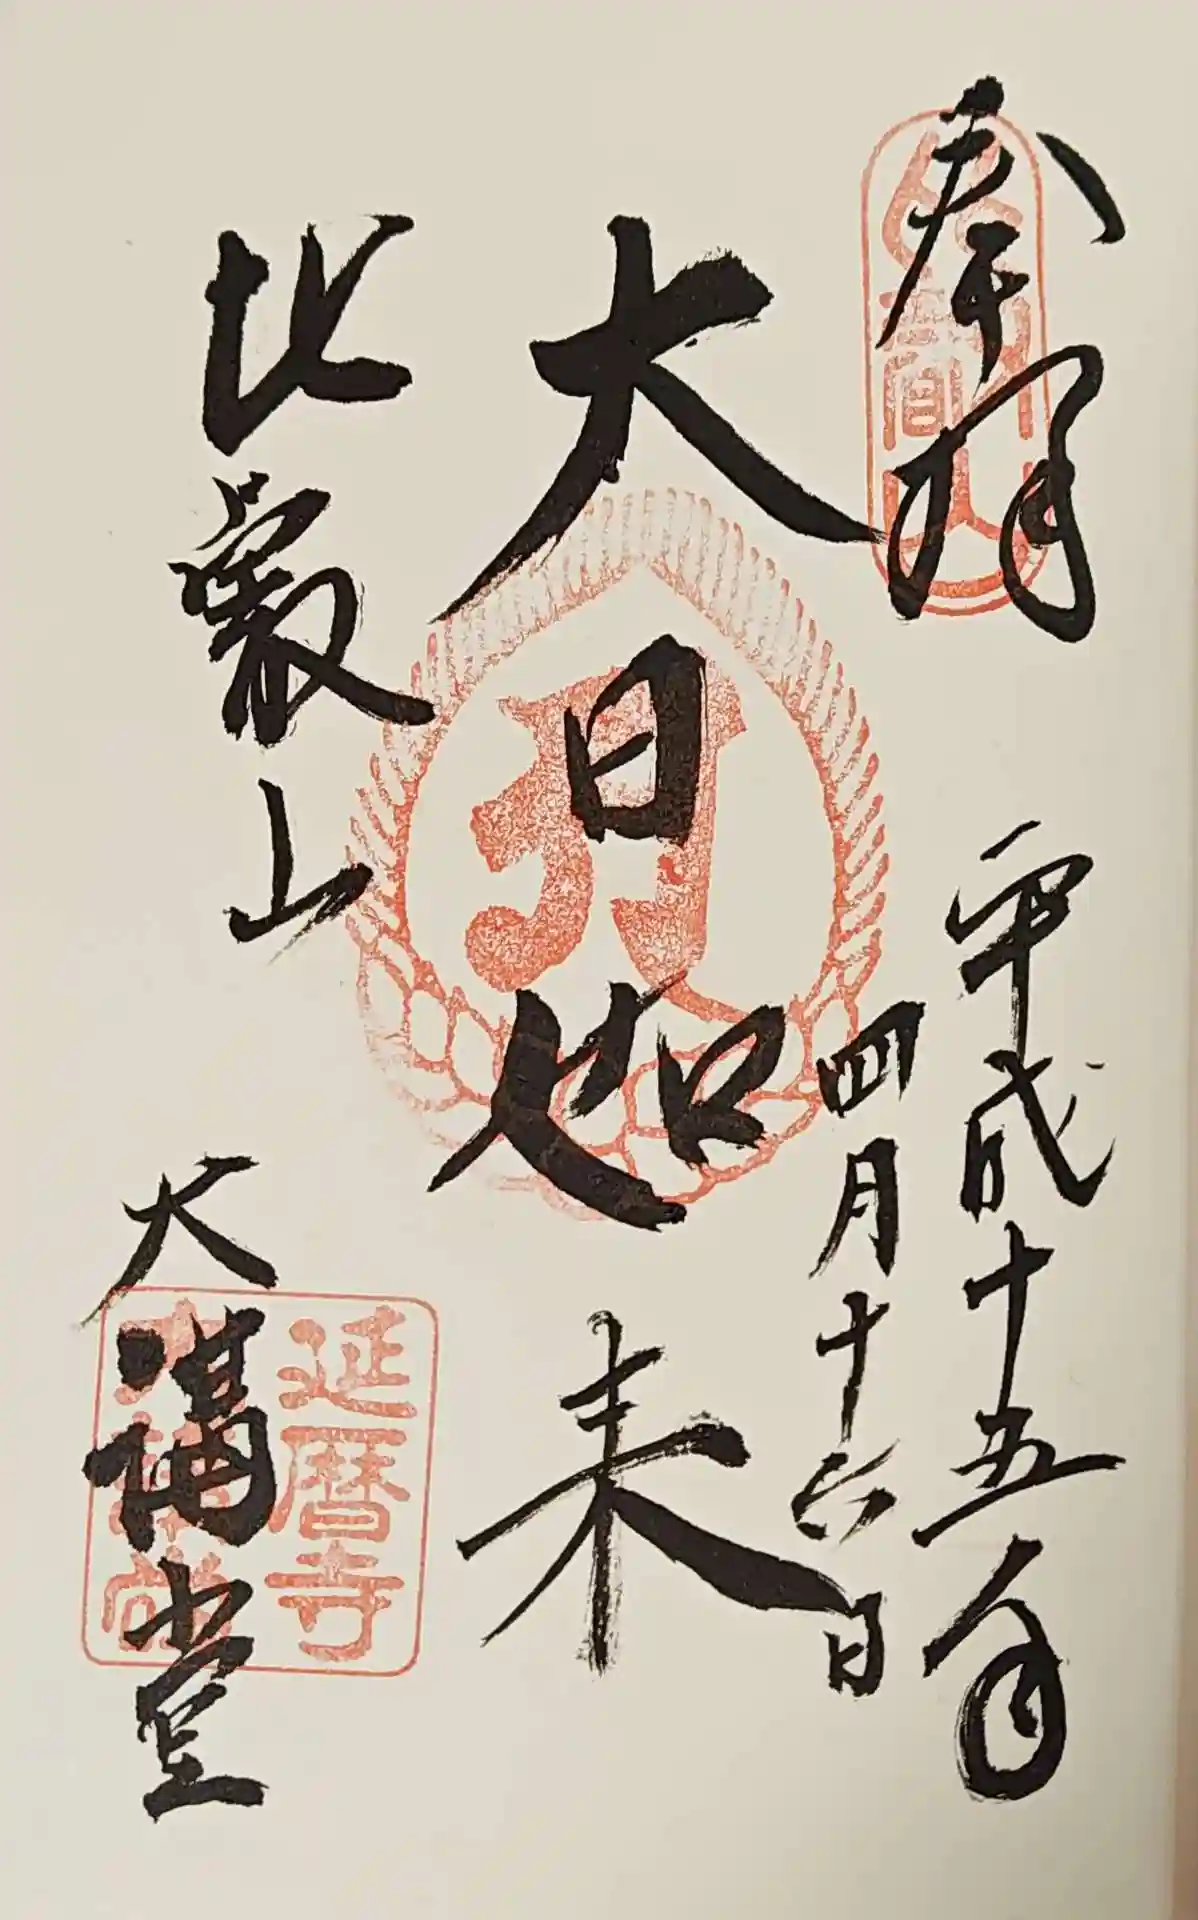 奉拝
平成十五年
四月十六日
大日如来
比叡山
大講堂
延暦寺
大講堂